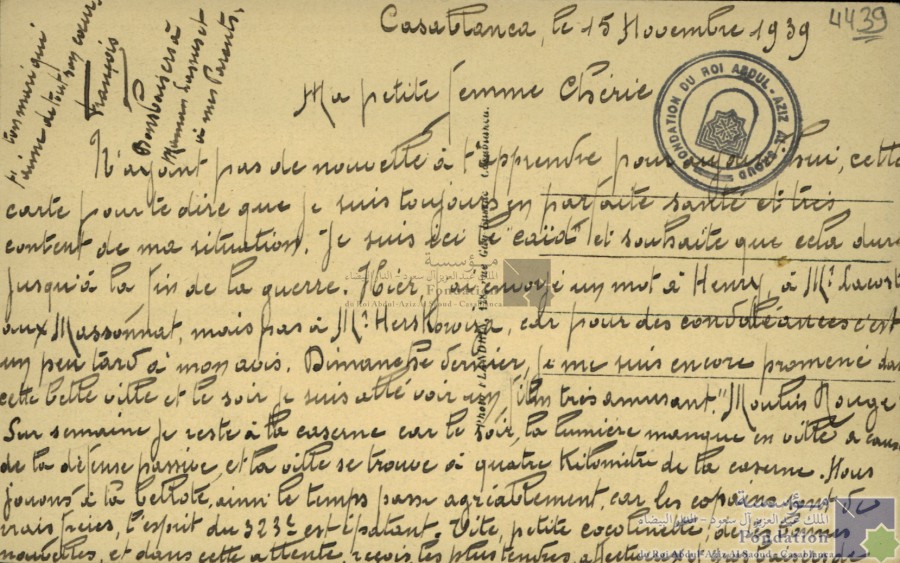 Casablanca, le 15 Novembre 1939
4439
Ma petite femme Chérie
N'ayant pas de nouvelle à t'apprendre pour aujourd'hui, cette
carte pour te dire que je suis toujours en parfaite santé et très
content de ma situation. Je suis ici le "caïd" et souhaite que cela dure
jusqu'à la fin de la guerre. Hier, j'ai envoyé un mot à Henry, à Mr Lacoste
aux Massonnat, mais pas à Mr, car pour des condoléances c'est
un peu tard à mon avis. Dimanche dernier, je me suis encore promené dans
cette belle ville et le soir je suis allé voir un film très amusant. "Moulin Rouge"
Sur semaine je reste à la caserne car le soir, la lumière manque en ville à cause
de la défense passive, et la ville se trouve à quatre kilomètre de la caserne. Nous
jouons à la bellote, ainsi le temps passe agréablement, car les copains sont de
vrais frères, l'esprit du 323e est épatant. Vite, petite cocolinette, de tes bonnes
nouvelles, et dans cette attente, reçois les plus tendres, affectueux et gros baisers de
ton mari qui
t'aime de tout son cœur.
François
Bons baisers à
Maman et
à mes Parents.
FONDATION DU ROI ABDUL-AZIZ AL-SAOUD
مؤسسة
الملك عبد العزيز آل سعود - الدار البيضاء
Fondation
du Roi Abdul-Aziz Al-Saoud - Casablanca
مؤسسة
الملك عبد العزيز آل سعود - الدار البيضاء
Fondation
du Roi Abdul-Aziz Al-Saoud - Casablanca